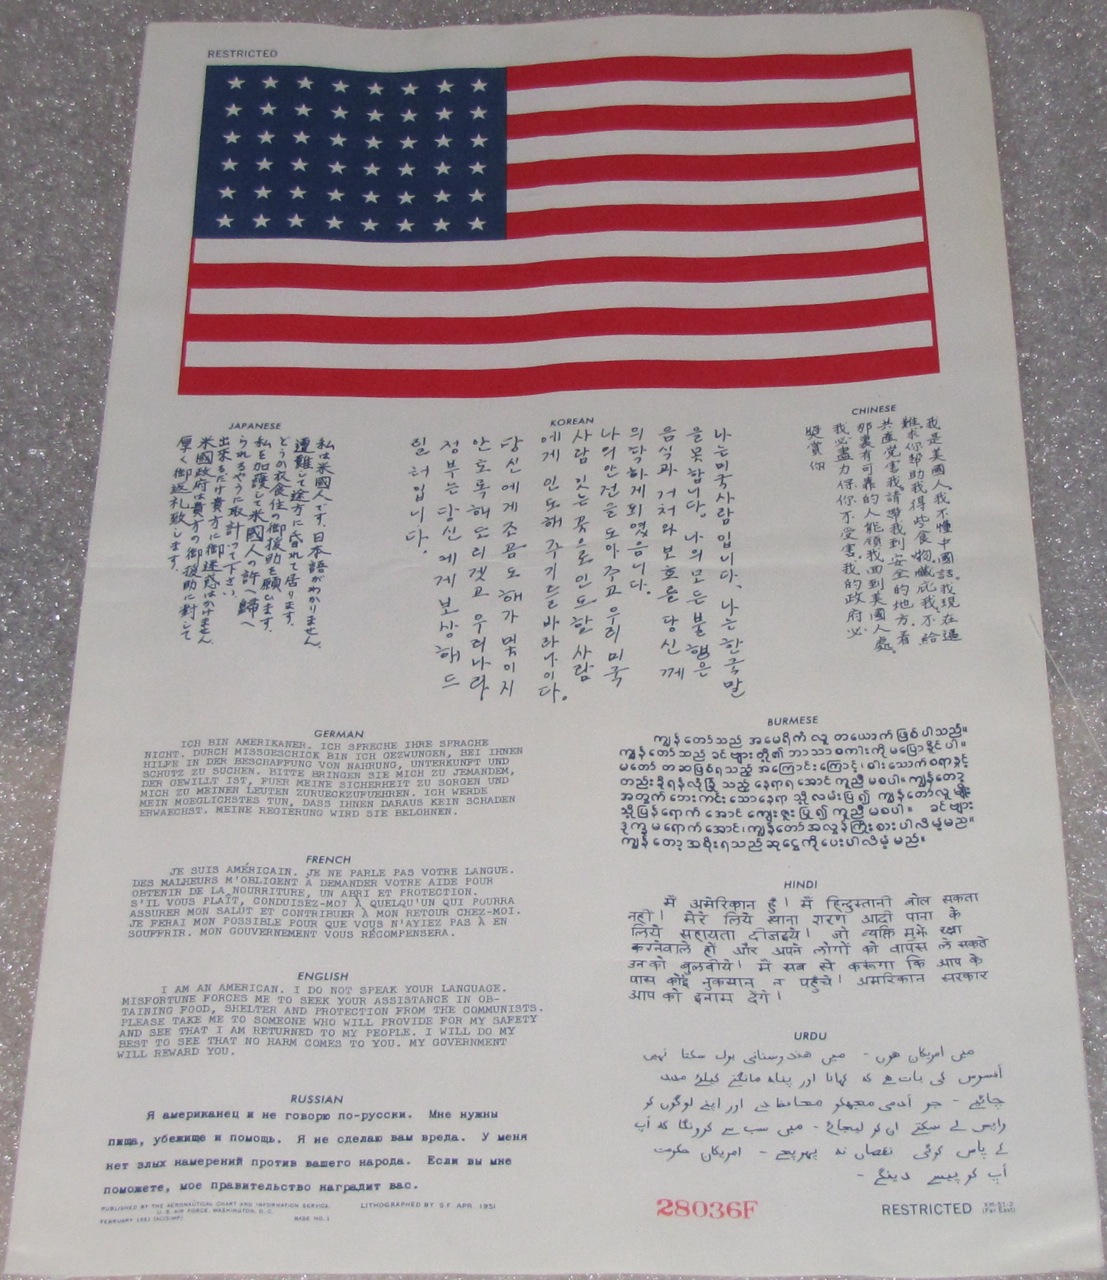 RESTRICTED
JAPANESE
私は米國人です。日本語がわかりません。
遭難して途方に昏れて居ります。
どうか衣食住の御援助を願います。
私を加護して米國人の許へ歸へ
られるやうに取計って下さい。
出来るだけ貴方に御迷惑はかけません。
米國政府は貴方の御援助に対して
厚く御返礼致します。
KOREAN
나는 미국사람입니다. 나는 한국말
을 못합니다. 나의 모든 불행은
음식과 거처와 보호를 당신께
의탁하게 되였음니다.
나의 안전을 도아주고 우리 미국
사람 잇는 곳으로 인도할 사람
에게 인도해 주기를 바라나이다.
당신에게 조곰도 해가 및이지
안도록 해도리겟고 우리나라
정부는 당신에게 보상해드
릴터입니다.
CHINESE
我是美國人我不懂中國話。我現在遇
難求你幫助我得些食物。藏庇我不給
共產党害我請導我到安全的地方。看
那裏有可靠的人能領我回到美國人處。
我必盡力保你不受害。我的政府必
獎賞你
GERMAN
ICH BIN AMERIKANER. ICH SPRECHE IHRE SPRACHE
NICHT. DURCH MISSGESCHICK BIN ICH GEZWUNGEN, BEI IHNEN
HILFE IN DER BESCHAFFUNG VON NAHRUNG, UNTERKUNFT UND
SCHUTZ ZU SUCHEN. BITTE BRINGEN SIE MICH ZU JEMANDEM,
DER GEWILLT IST, FUER MEINE SICHERHEIT ZU SORGEN UND
MICH ZU MEINEN LEUTEN ZURUECKZUFUEHREN. ICH WERDE
MEIN MOEGLICHSTES TUN, DASS IHNEN DARAUS KEIN SCHADEN
ERWAECHST. MEINE REGIERUNG WIRD SIE BELOHNEN.
FRENCH
JE SUIS AMÉRICAIN. JE NE PARLE PAS VOTRE LANGUE.
DES MALHEURS M'OBLIGENT À DEMANDER VOTRE AIDE POUR
OBTENIR DE LA NOURRITURE, UN ABRI ET PROTECTION.
S'IL VOUS PLAÎT, CONDUISEZ-MOI À QUELQU'UN QUI POURRA
ASSURER MON SALUT ET CONTRIBUER À MON RETOUR CHEZ-MOI.
JE FERAI MON POSSIBLE POUR QUE VOUS N'AYIEZ PAS À EN
SOUFFRIR. MON GOUVERNEMENT VOUS RÉCOMPENSERA.
ENGLISH
I AM AN AMERICAN. I DO NOT SPEAK YOUR LANGUAGE.
MISFORTUNE FORCES ME TO SEEK YOUR ASSISTANCE IN OB-
TAINING FOOD, SHELTER AND PROTECTION FROM THE COMMUNISTS.
PLEASE TAKE ME TO SOMEONE WHO WILL PROVIDE FOR MY SAFETY
AND SEE THAT I AM RETURNED TO MY PEOPLE. I WILL DO MY
BEST TO SEE THAT NO HARM COMES TO YOU. MY GOVERNMENT
WILL REWARD YOU.
RUSSIAN
Я американец и не говорю по-русски. Мне нужны
пища, убежище и помощь. Я не сделаю вам вреда. У меня
нет злых намерений против вашего народа. Если вы мне
поможете, мое правительство наградит вас.
BURMESE
ကျွန်တော်သည် အမေရိက် လူ တယောက် ဖြစ်ပါသည်။
ကျွန်တော်သည် ခင်ဗျားတို့၏ ဘာသာစကားကို မပြောနိုင်ပါ။
ကျွန်တော့ အစိုးရသည် ဆုငွေကိုပေးပါလိမ့်မည်။
HINDI
मैं अमेरिकान हूँ। मैं हिन्दुस्तानी बोल सकता
नहीं। मेरे लिये खाना शरण आदी पाना के
लिये सहायता दीजइये। जो व्यक्ति मुझे रक्षा
करनेवाले हो और अपने लोगों को वापस ले सकते
उनको बुलवीये। मैं सब से करूंगा कि आप के
पास कोई नुकसान न पहुँचे। अमरिकान सरकार
आप को इनाम देंगे।
URDU
میں امریکان ہوں - میں ہندوستانی بول سکتا نہیں
افسوس کی بات ہے کہ کھانا اور پناہ مانگنے کیلئے مدد
چاہئے - جو آدمی مجھکو محافظ دے اور اپنے لوگوں کو
واپس لے سکتے ان کو لیجاؤ - میں سب سے کرونگا کہ آپ
کے پاس کوئی نقصان نہ پہونچے - امریکان حکومت
آپ کو پیسے دینگے -
PUBLISHED BY THE AERONAUTICAL CHART AND INFORMATION SERVICE,
U. S. AIR FORCE, WASHINGTON, D. C.
FEBRUARY 1951 (ACIS/MP) BASE NO. 1
LITHOGRAPHED BY S F APR. 1951
28036F
RESTRICTED
(Far East)